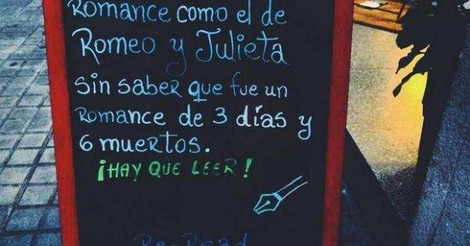 Romance como el de
Romeo y Julieta
sin saber que fue un
Romance de 3 días y
6 muertos.
¡HAY QUE LEER!
Re-Read